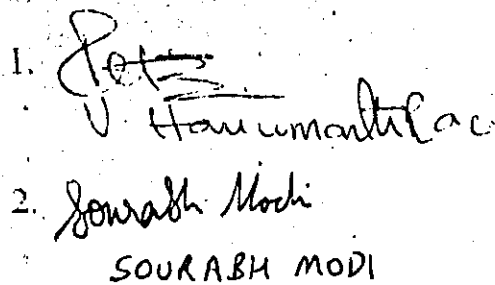 1.
V. Hanumanth Rao
2. Sourabh Modi
SOURABH MODI